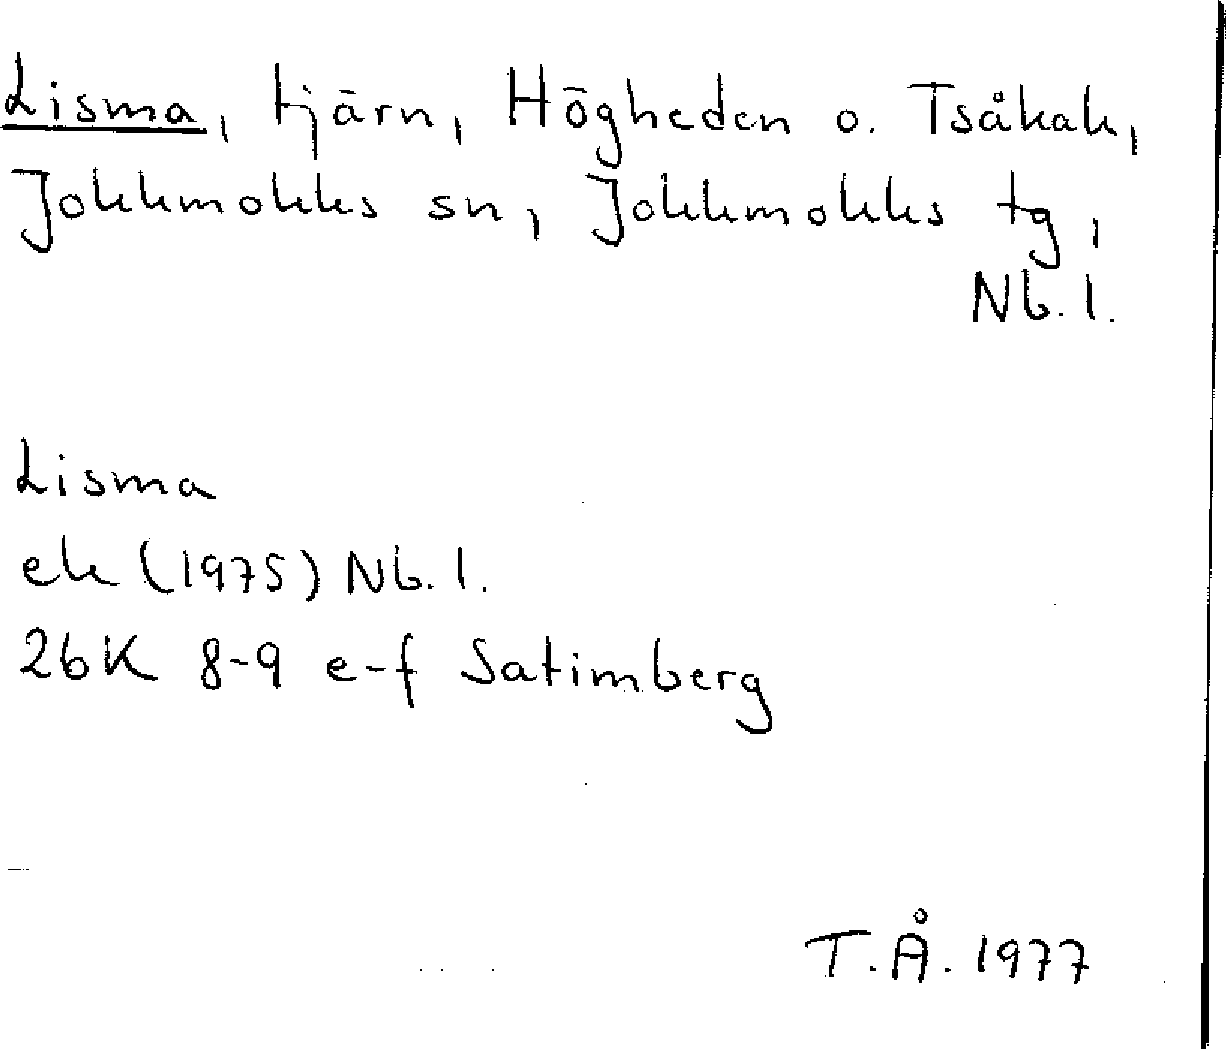 Lisma, tjärn, Högheden o. Tsåkak,
Jokkmokks sn, Jokkmokks tg,
Nb. l.
Lisma
ek (1975) Nb. l.
26K 8-9 e-f Satimberg
T.Å. 1977